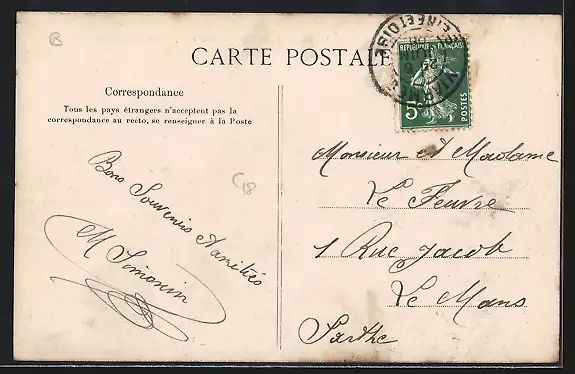 CARTE POSTALE
Correspondance
Tous les pays étrangers n'acceptent pas la
correspondance au recto, se renseigner à la Poste
RÉPUBLIQUE FRANÇAISE
5c
POSTES
SEINE ET OISE
Bons Souvenirs d'amitiés
M Simonin
C18
Monsieur et Madame
Le Feuvre
1 Rue Jacob
Le Mans
Sarthe